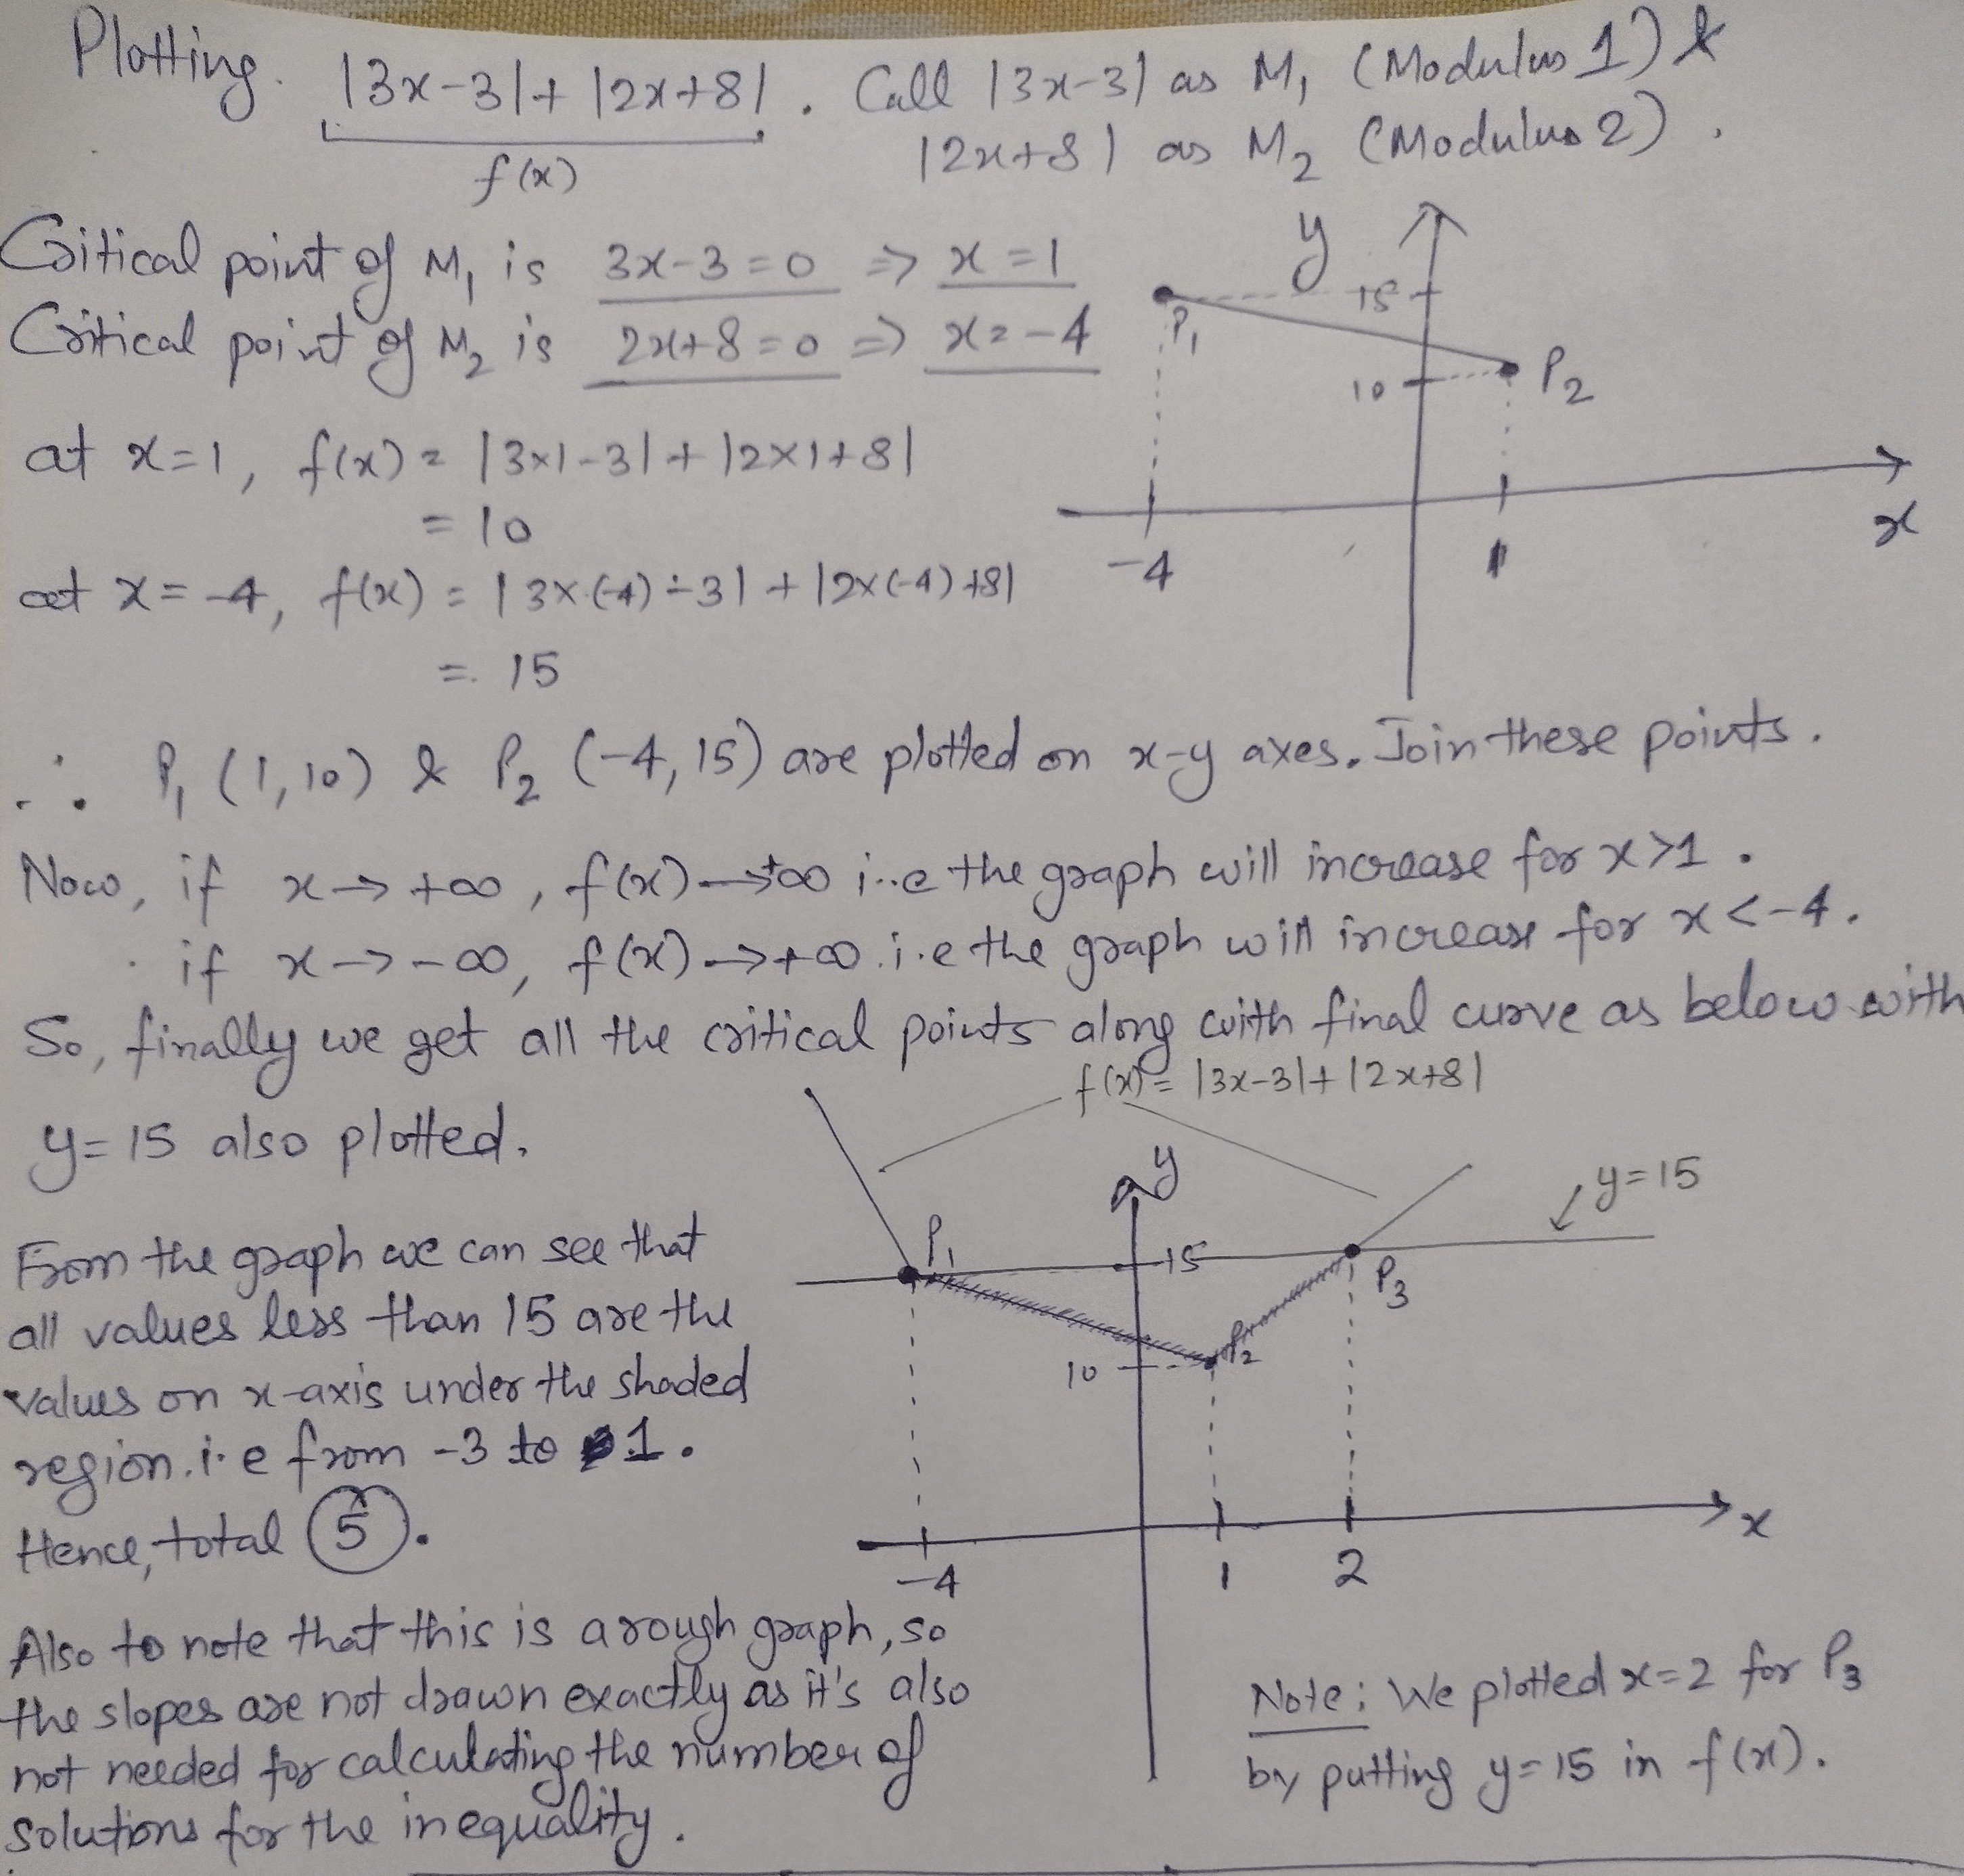 Plotting. |3x-3|+|2x+8|. Call |3x-3| as M₁ (Modulus 1) &
f(x) |2x+8| as M₂ (Modulus 2).
Critical point of M₁ is 3x-3=0 => x=1
Critical point of M₂ is 2x+8=0 => x=-4
y
15
P₁
10
P₂
-4
1
x
at x=1, f(x) = |3×1-3|+|2×1+8|
= 10
at x=-4, f(x) = |3×(-4)-3|+|2×(-4)+8|
= 15
∴ P₁ (1,10) & P₂ (-4,15) are plotted on x-y axes. Join these points.
Now, if x→+∞, f(x)→+∞ i.e the graph will increase for x>1.
if x→-∞, f(x)→+∞ i.e the graph will increase for x<-4.
So, finally we get all the critical points along with final curve as below with
f(x)= |3x-3|+|2x+8|
y=15 also plotted.
y
y=15
P₁
15
P₃
P₂
10
-4
1
2
x
From the graph we can see that
all values less than 15 are the
values on x-axis under the shaded
region. i.e from -3 to 1.
Hence, total 5.
Also to note that this is a rough graph, so
the slopes are not drawn exactly as it's also
not needed for calculating the number of
solutions for the inequality.
Note: We plotted x=2 for P₃
by putting y=15 in f(x).